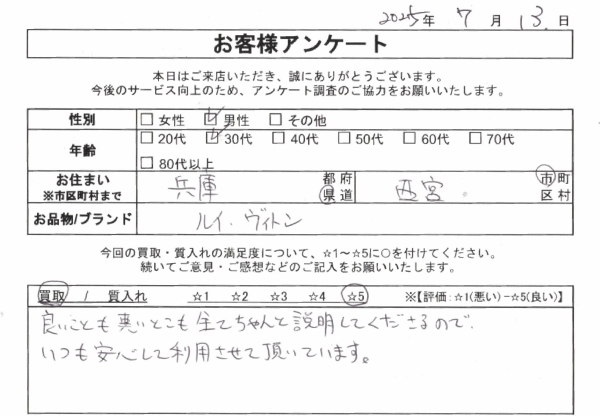 2025年 7月 13.日
お客様アンケート
本日はご来店いただき、誠にありがとうございます。
今後のサービス向上のため、アンケート調査のご協力をお願いいたします。
性別 □ 女性 ☑ 男性 □ その他
年齢 □ 20代 ☑ 30代 □ 40代 □ 50代 □ 60代 □ 70代
□ 80代以上
お住まい 兵庫 都 府 西宮 市 町
※市区町村まで 県 道 区 村
お品物/ブランド ルイ・ヴィトン
今回の買取・質入れの満足度について、☆1～☆5に○を付けてください。
続いてご意見・ご感想などのご記入をお願いいたします。
買取 / 質入れ ☆1 ☆2 ☆3 ☆4 ☆5 ※【評価:☆1(悪い)−☆5(良い)】
良いことも悪いとこも全てちゃんと説明してくださるので、
いつも安心して利用させて頂いています。